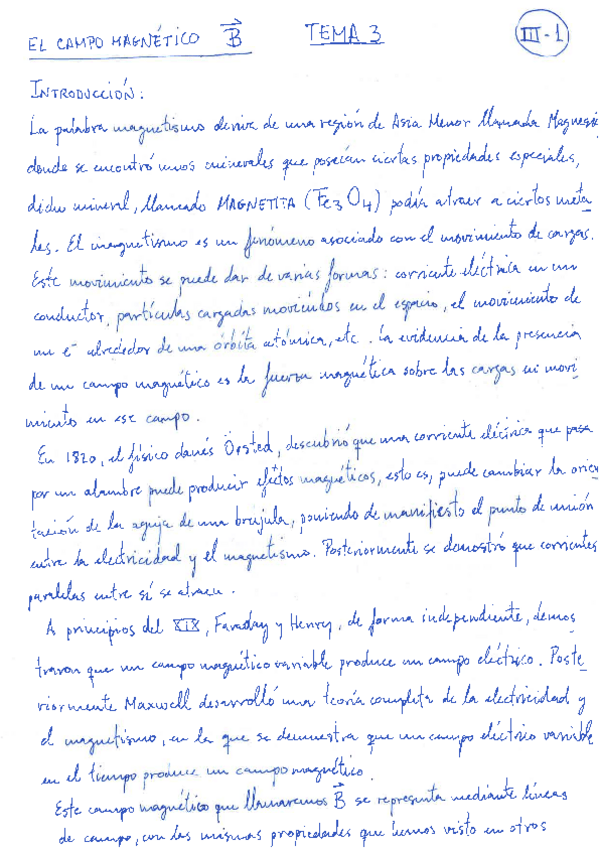 EL CAMPO MAGNÉTICO B⃗ TEMA 3 III-1
INTRODUCCIÓN:
La palabra magnetismo deriva de una región de Asia Menor llamada Magnesia
donde se encontró unos minerales que poseían ciertas propiedades especiales,
dicho mineral, llamado MAGNETITA (Fe3O4) podía atraer a ciertos meta
les. El magnetismo es un fenómeno asociado con el movimiento de cargas.
Este movimiento se puede dar de varias formas: corriente eléctrica en un
conductor, partículas cargadas moviéndos en el espacio, el movimiento de
un e⁻ alrededor de una órbita atómica, etc. La evidencia de la presencia
de un campo magnético es la fuerza magnética sobre las cargas en movi
miento en ese campo.
En 1820, el físico danés Örsted, descubrió que una corriente eléctrica que pasa
por un alambre puede producir efectos magnéticos, esto es, puede cambiar la orien
tación de la aguja de una brújula, poniendo de manifiesto el punto de unión
entre la electricidad y el magnetismo. Posteriormente se demostró que corrientes
paralelas entre sí se atraen.
A principios del XIX, Faraday y Henry, de forma independiente, demos
traron que un campo magnético variable produce un campo eléctrico. Poste
riormente Maxwell desarrolló una teoría completa de la electricidad y
el magnetismo, en la que se demuestra que un campo eléctrico variable
en el tiempo produce un campo magnético.
Este campo magnético que llamaremos B⃗ se representa mediante líneas
de campo, con las mismas propiedades que hemos visto en otros